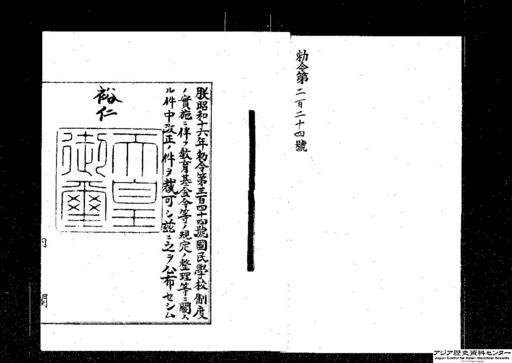 勅令第二百二十四號
朕昭和十六年勅令第三百四十四號國民學校制度
ノ實施ニ伴フ教育基金令等ノ規定ノ整理等ニ關ス
ル件中改正ノ件ヲ裁可シ茲ニ之ヲ公布セシム
裕仁
天皇御璽
内閣
アジア歴史資料センター
Japan Center for Asian Historical Records